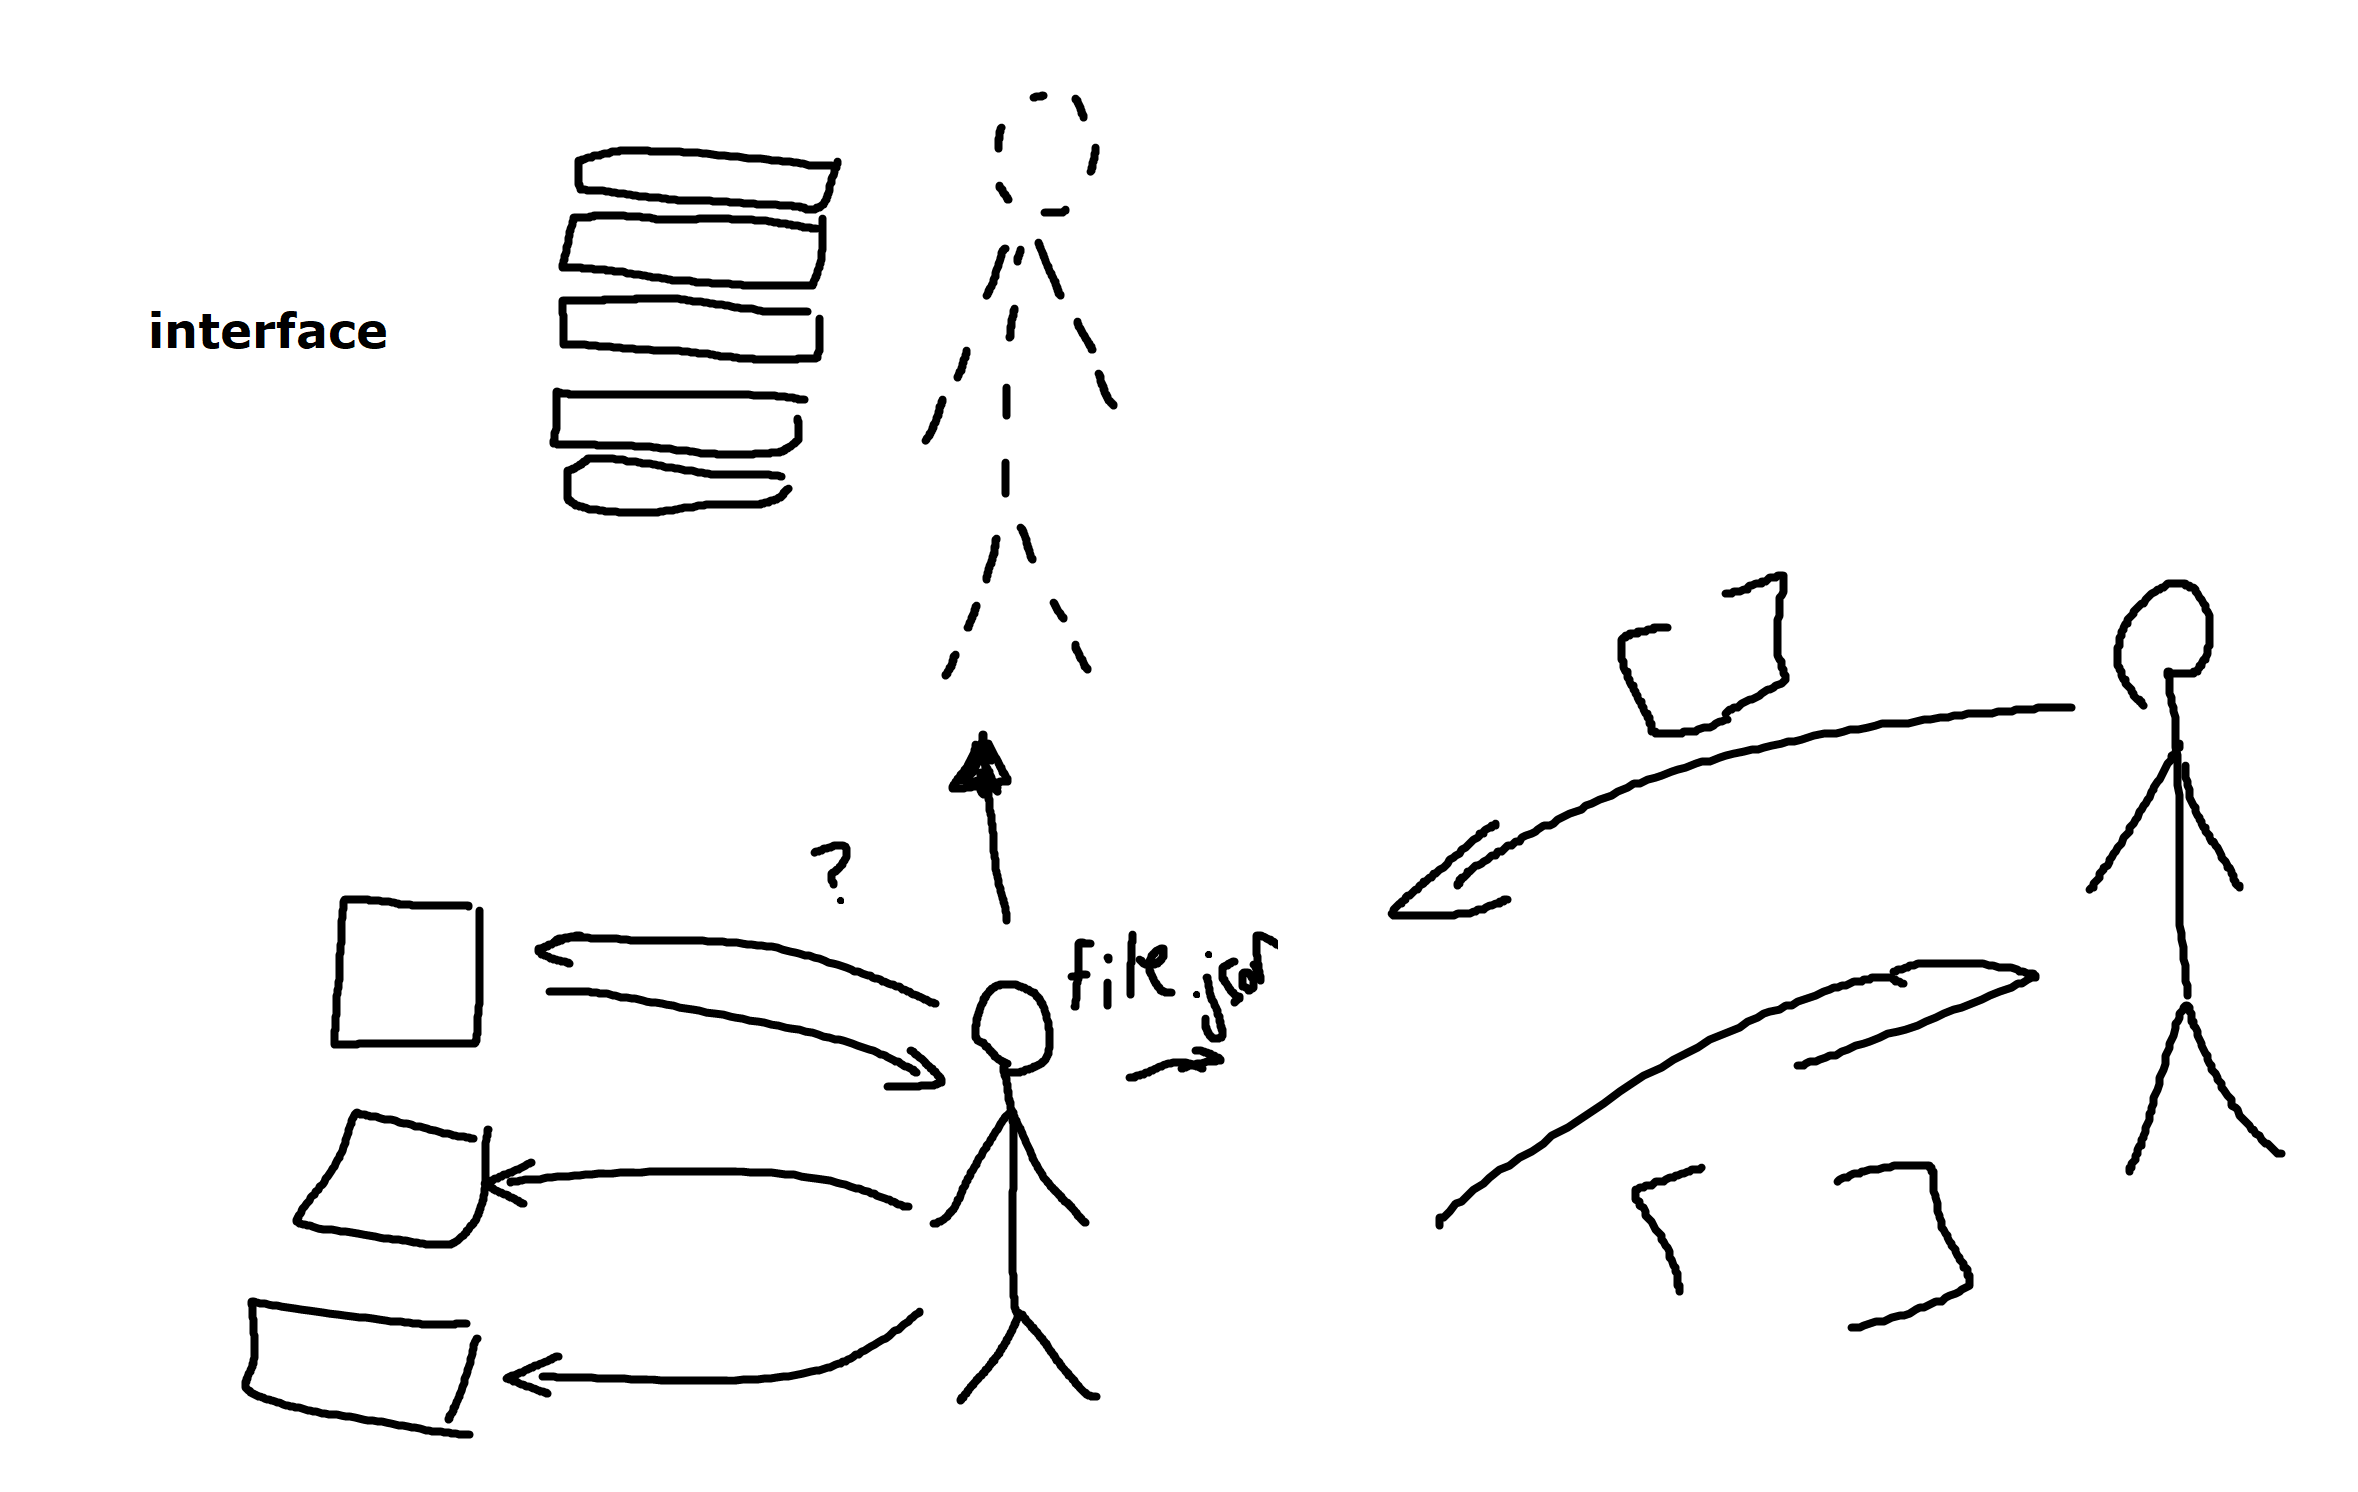 interface
?
file.jar